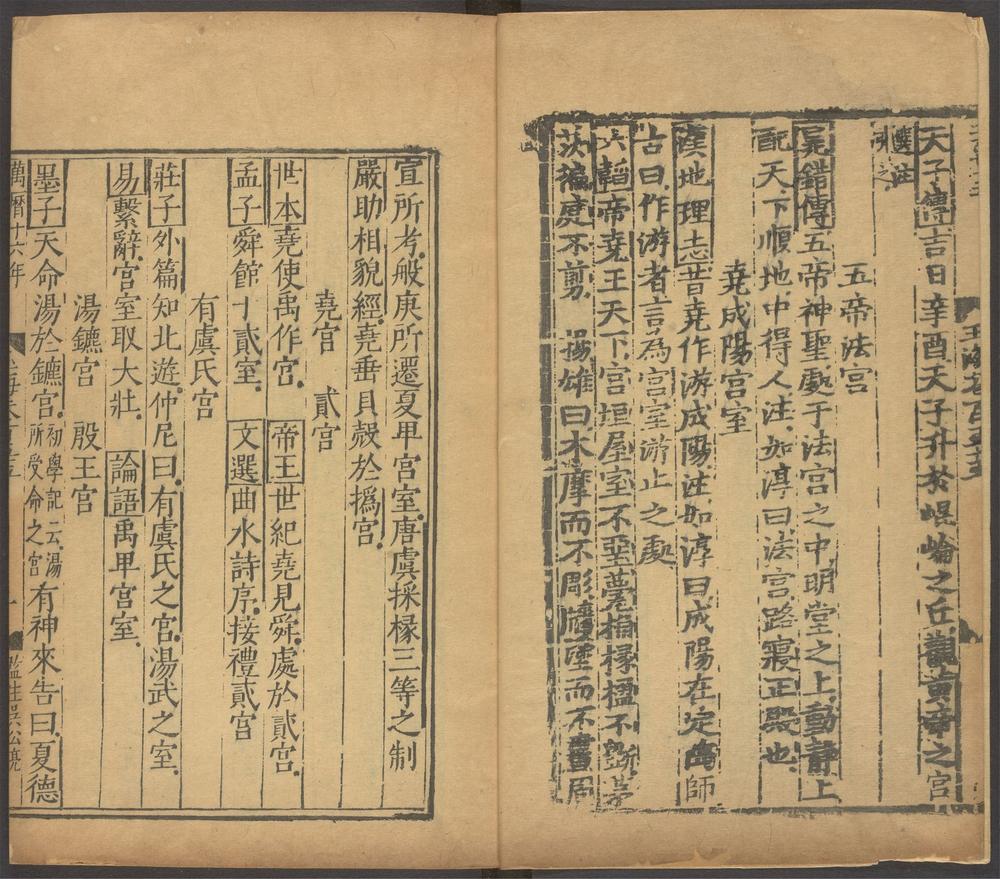 天子傳吉日辛酉天子升於崐崘之丘觀黃帝之宮
選注
五帝法宮
鼂錯傳五帝神聖處于法宮之中明堂之上動靜上
配天下順地中得人注如淳曰法宮路寢正殿也
堯成陽宮室
漢地理志昔堯作游成陽注如淳曰成陽在定陶師
古曰作游者言為宮室游止之處
六韜帝堯王天下宮垣屋室不堊甍桷椽楹不斲茅
茨徧庭不剪 揚雄曰木摩而不彫墻塗而不畫周
宣所考般庚所遷夏甲宮室唐虞採椽三等之制
嚴助相貌經堯垂貝殼於撝宮
堯宮 貳宮
世本堯使禹作宮 帝王世紀堯見舜處於貳宮
孟子舜館于貳室 文選曲水詩序接禮貳宮
有虞氏宮
莊子外篇知北遊仲尼曰有虞氏之宮湯武之室
易繫辭宮室取大壯 論語禹甲宮室
湯鑣宮 殷王宮
墨子天命湯於鑣宮初學記云湯所受命之宮有神來告曰夏德
萬曆十六年 監生吳公亮